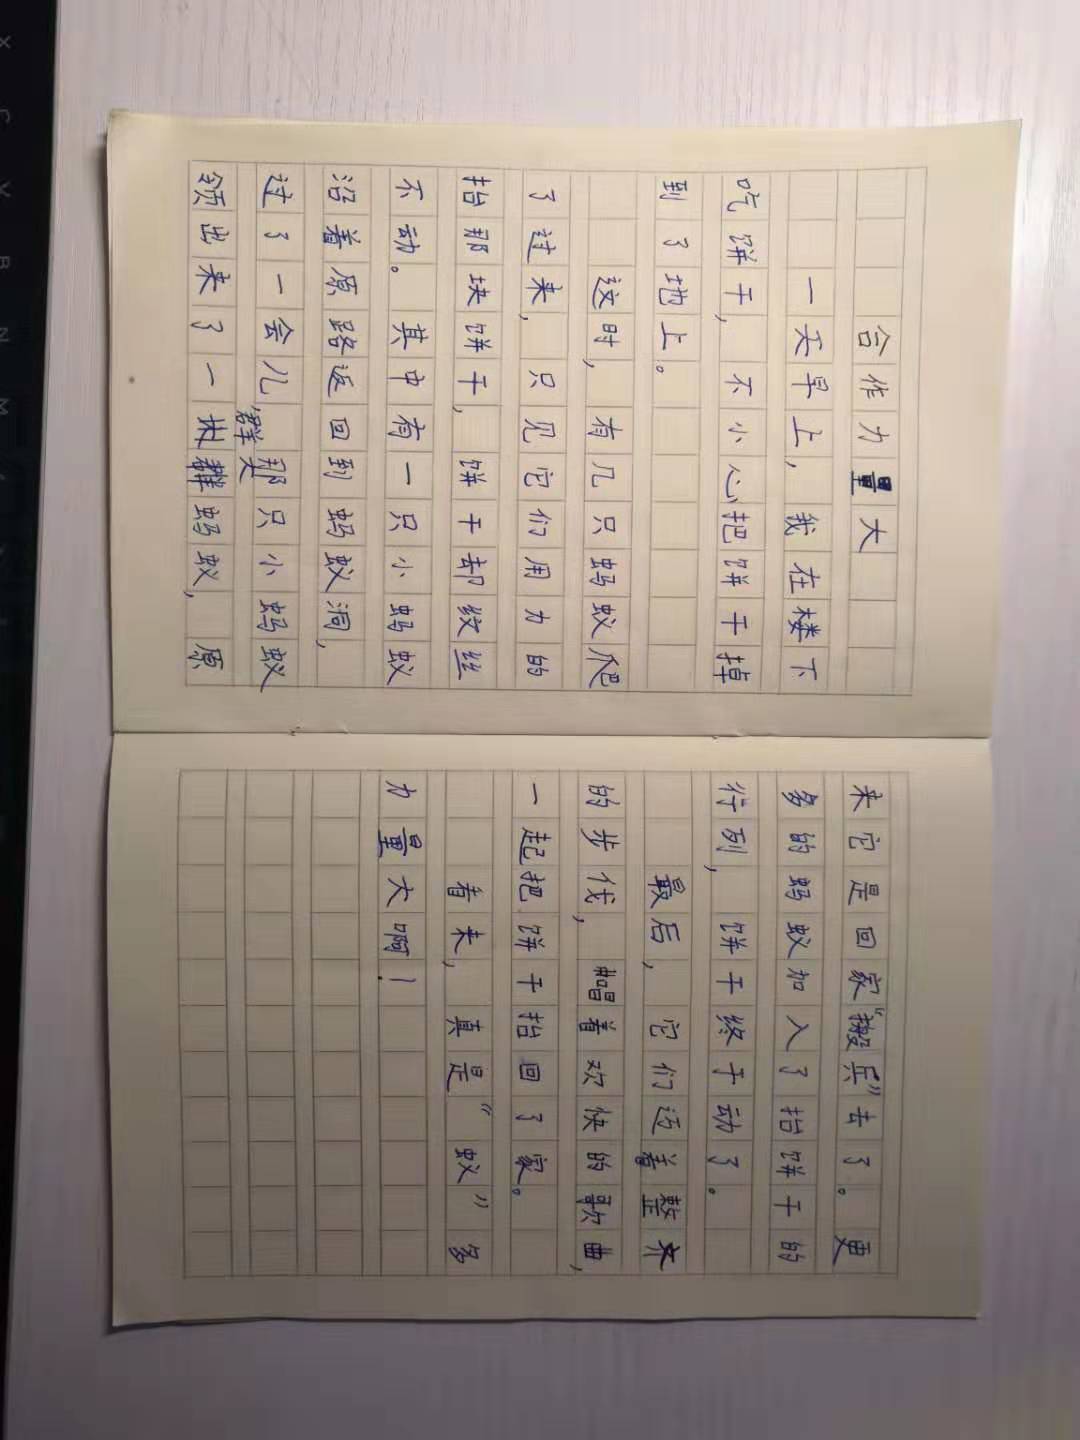 合作力量大
一天早上，我在楼下
吃饼干，不小心把饼干掉
到了地上。
这时，有几只蚂蚁爬
了过来，只见它们用力的
抬那块饼干，饼干却纹丝
不动。其中有一只小蚂蚁
沿着原路返回到蚂蚁洞，
过了一会儿，那只小蚂蚁
领出来了一大群蚂蚁，原
来它是回家“搬兵”去了。更
多的蚂蚁加入了抬饼干的
行列，饼干终于动了。
最后，它们迈着整齐
的步伐，唱着欢快的歌曲，
一起把饼干抬回了家。
看来，真是“蚁”多
力量大啊！
X
C
V
B
N
M